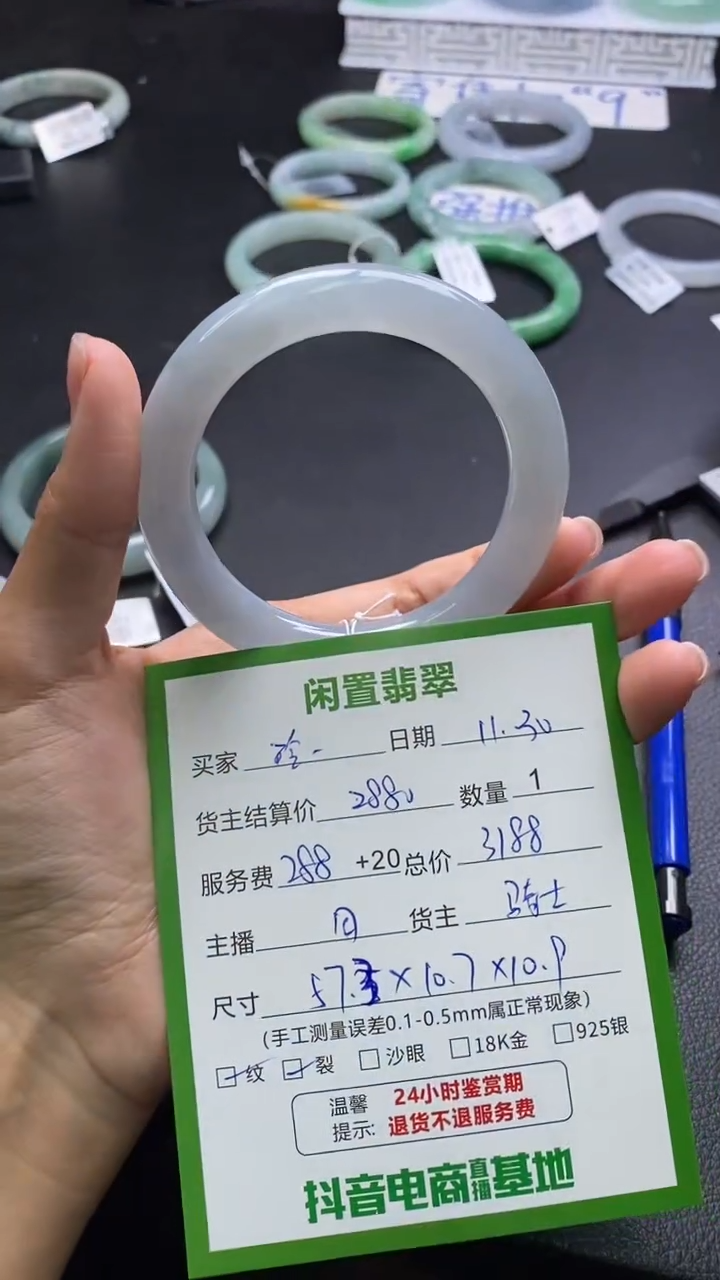 闲置翡翠
买家 日期 11.30
货主结算价 2880 数量 1
服务费 288 +20 总价 3188
主播 货主 骑士
尺寸 57. × 10.7 × 10.9
(手工测量误差0.1-0.5mm属正常现象)
纹 裂 沙眼 18K金 925银
温馨 24小时鉴赏期
提示: 退货不退服务费
抖音电商直播基地